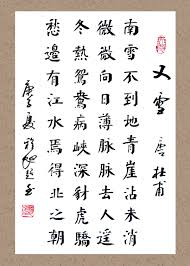 又雪 唐 杜甫
南雪不到地青崖沾未消
微微向日薄脉脉去人遥
冬熱鴛鴦病峽深豺虎驕
愁邊有江水焉得北之朝
庚子夏